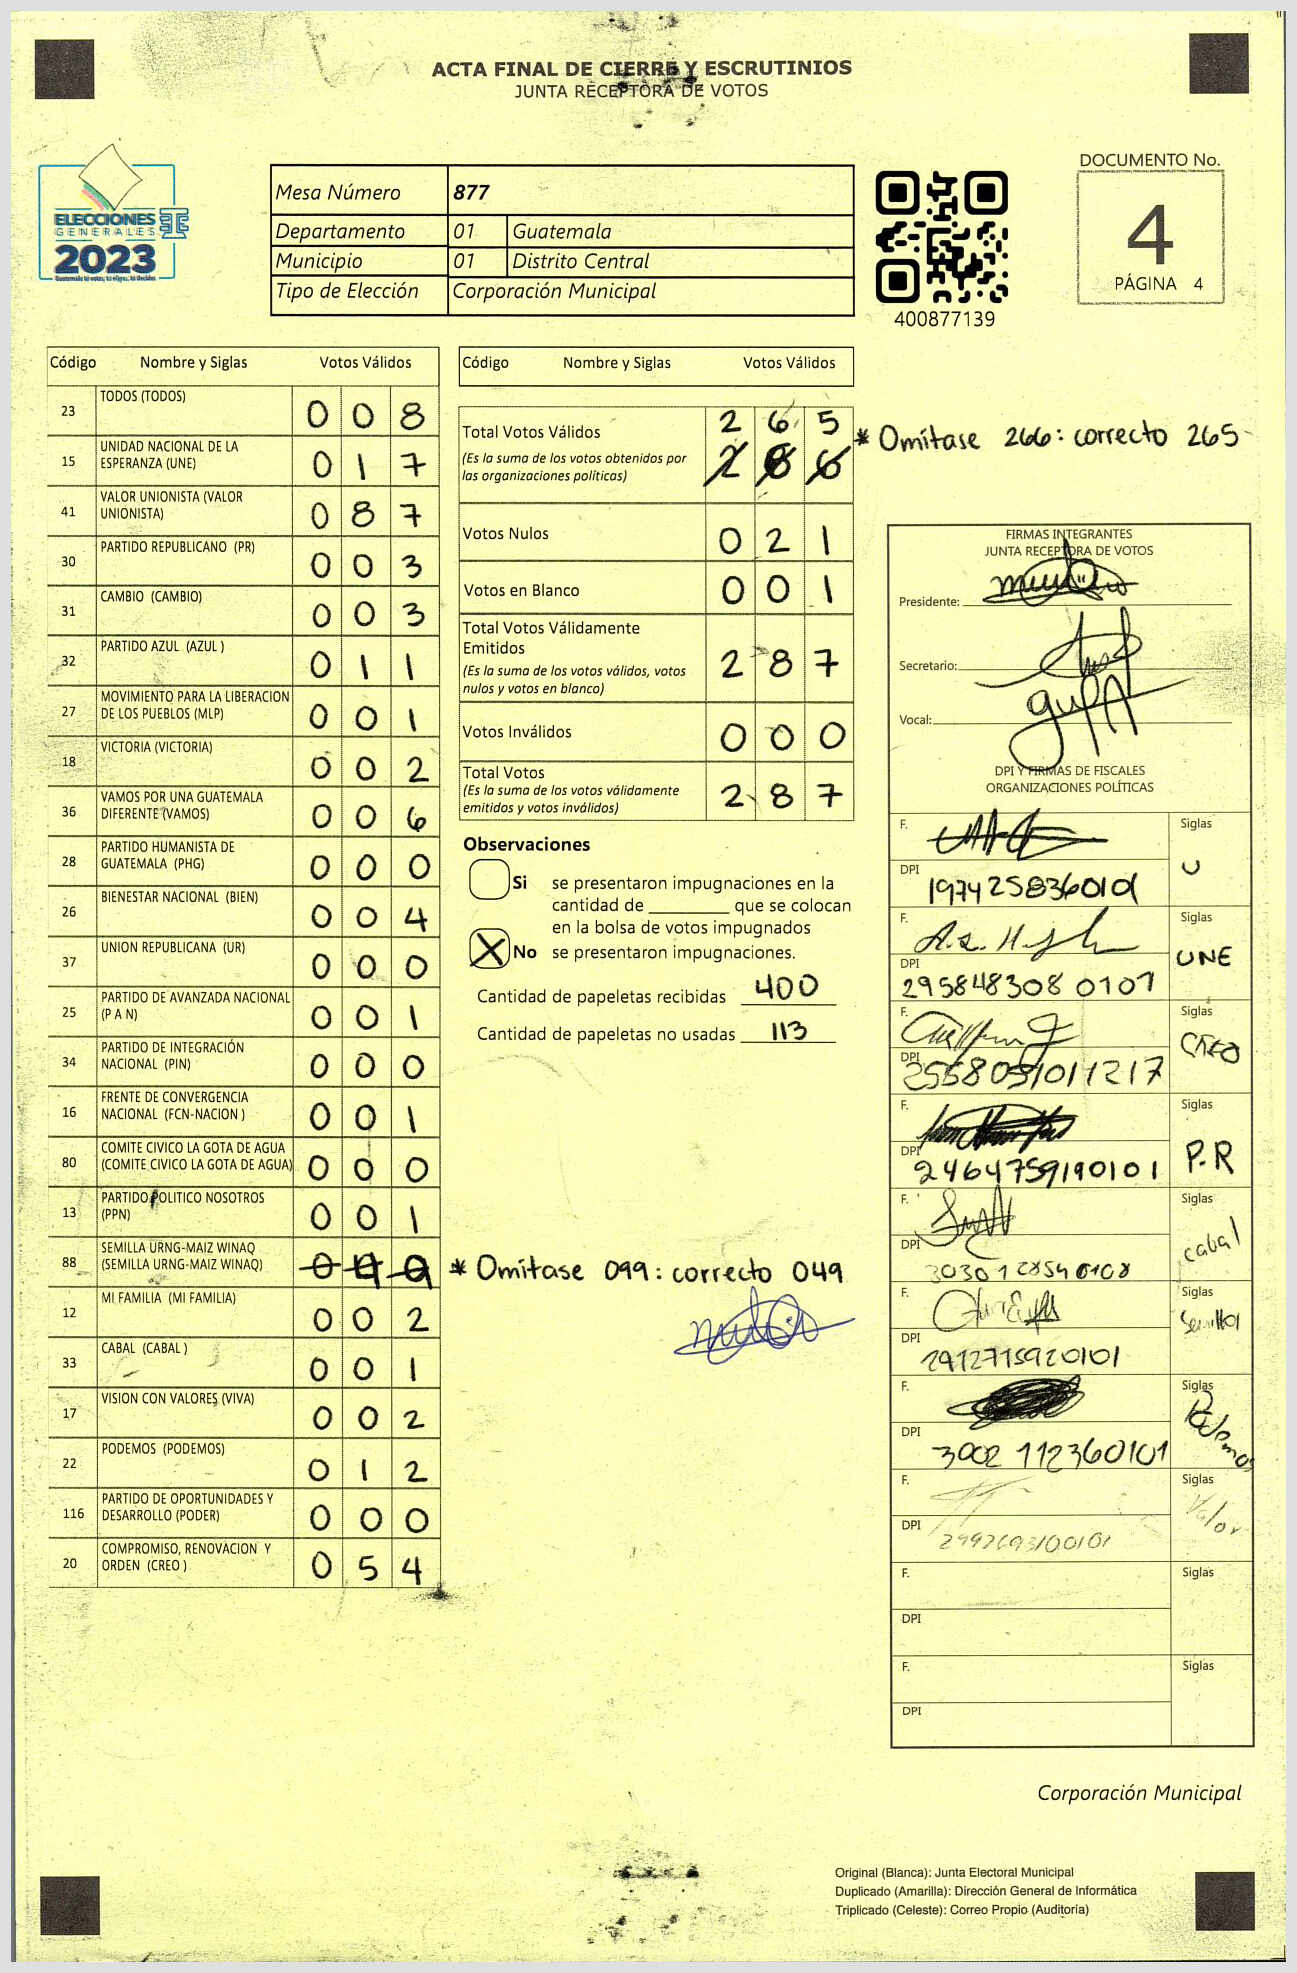 ACTA FINAL DE CIERRE Y ESCRUTINIOS
JUNTA RECEPTORA DE VOTOS
ELECCIONES
GENERALES
2023
Guatemala tú votas, tú eliges, tú decides
Mesa Número 877
Departamento 01 Guatemala
Municipio 01 Distrito Central
Tipo de Elección Corporación Municipal
400877139
DOCUMENTO No.
4
PÁGINA 4
Código Nombre y Siglas Votos Válidos
23 TODOS (TODOS) 0 0 8
15 UNIDAD NACIONAL DE LA ESPERANZA (UNE) 0 1 7
41 VALOR UNIONISTA (VALOR UNIONISTA) 0 8 7
30 PARTIDO REPUBLICANO (PR) 0 0 3
31 CAMBIO (CAMBIO) 0 0 3
32 PARTIDO AZUL (AZUL ) 0 1 1
27 MOVIMIENTO PARA LA LIBERACION DE LOS PUEBLOS (MLP) 0 0 1
18 VICTORIA (VICTORIA) 0 0 2
36 VAMOS POR UNA GUATEMALA DIFERENTE (VAMOS) 0 0 6
28 PARTIDO HUMANISTA DE GUATEMALA (PHG) 0 0 0
26 BIENESTAR NACIONAL (BIEN) 0 0 4
37 UNION REPUBLICANA (UR) 0 0 0
25 PARTIDO DE AVANZADA NACIONAL (P A N) 0 0 1
34 PARTIDO DE INTEGRACIÓN NACIONAL (PIN) 0 0 0
16 FRENTE DE CONVERGENCIA NACIONAL (FCN-NACION ) 0 0 1
80 COMITE CIVICO LA GOTA DE AGUA (COMITE CIVICO LA GOTA DE AGUA) 0 0 0
13 PARTIDO POLITICO NOSOTROS (PPN) 0 0 1
88 SEMILLA URNG-MAIZ WINAQ (SEMILLA URNG-MAIZ WINAQ) * Omítase 099: correcto 049
12 MI FAMILIA (MI FAMILIA) 0 0 2
33 CABAL (CABAL ) 0 0 1
17 VISION CON VALORES (VIVA) 0 0 2
22 PODEMOS (PODEMOS) 0 1 2
116 PARTIDO DE OPORTUNIDADES Y DESARROLLO (PODER) 0 0 0
20 COMPROMISO, RENOVACION Y ORDEN (CREO ) 0 5 4
Código Nombre y Siglas Votos Válidos
Total Votos Válidos 2 6 5
(Es la suma de los votos obtenidos por
las organizaciones políticas) 2 6 6
* Omítase 266: correcto 265
Votos Nulos 0 2 1
Votos en Blanco 0 0 1
Total Votos Válidamente
Emitidos 2 8 7
(Es la suma de los votos válidos, votos
nulos y votos en blanco)
Votos Inválidos 0 0 0
Total Votos
(Es la suma de los votos válidamente
emitidos y votos inválidos) 2 8 7
Observaciones
Si se presentaron impugnaciones en la
cantidad de ________ que se colocan
en la bolsa de votos impugnados
X No se presentaron impugnaciones.
Cantidad de papeletas recibidas 400
Cantidad de papeletas no usadas 113
FIRMAS INTEGRANTES
JUNTA RECEPTORA DE VOTOS
Presidente:
Secretario:
Vocal:
DPI Y FIRMAS DE FISCALES
ORGANIZACIONES POLÍTICAS
F. Siglas
DPI 1974258360101 U
F. Siglas
DPI 2958483080101 UNE
F. Siglas
DPI 2558051011217 CREO
F. Siglas
DPI 2464759190101 P.R
F. Siglas
DPI cabal
F. Siglas
DPI 2912715920101 Semilla
F. Siglas
DPI 3002 112360101 Podemos
F. Siglas
DPI Valor
F. Siglas
DPI
F. Siglas
DPI
Corporación Municipal
Original (Blanca): Junta Electoral Municipal
Duplicado (Amarilla): Dirección General de Informática
Triplicado (Celeste): Correo Propio (Auditoría)